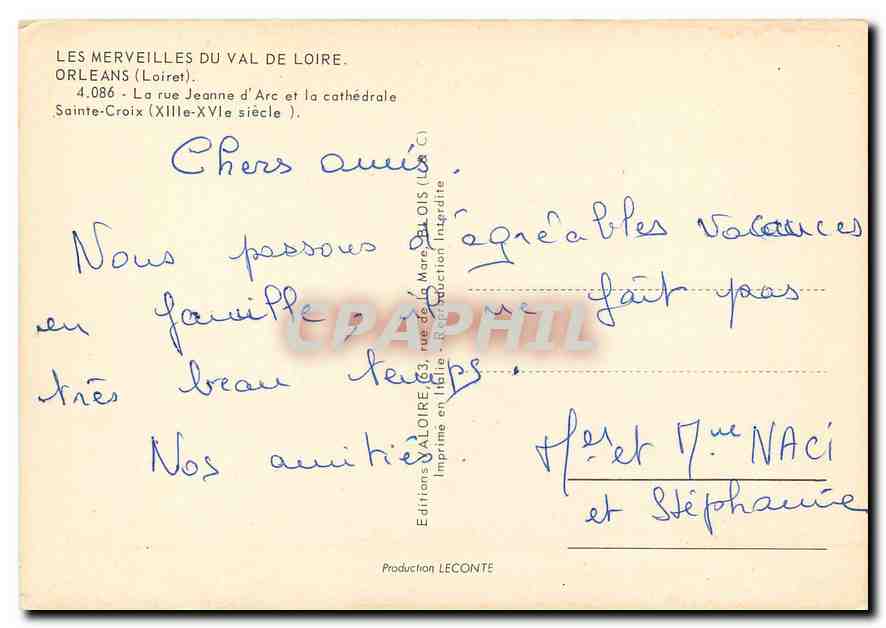 LES MERVEILLES DU VAL DE LOIRE.
ORLEANS (Loiret).
4.086 - La rue Jeanne d'Arc et la cathédrale
Sainte-Croix (XIIIe-XVIe siècle ).
Chers amis.
Nous passons d'agréables vacances
en famille, il ne fait pas
très beau temps.
Nos amitiés.
et Mme NACI
et Stéphanie
Editions VALOIRE, 63, rue de la Mare, BLOIS (L. & C)
Imprimé en Italie - Reproduction Interdite
CPAPHIL
Production LECONTE